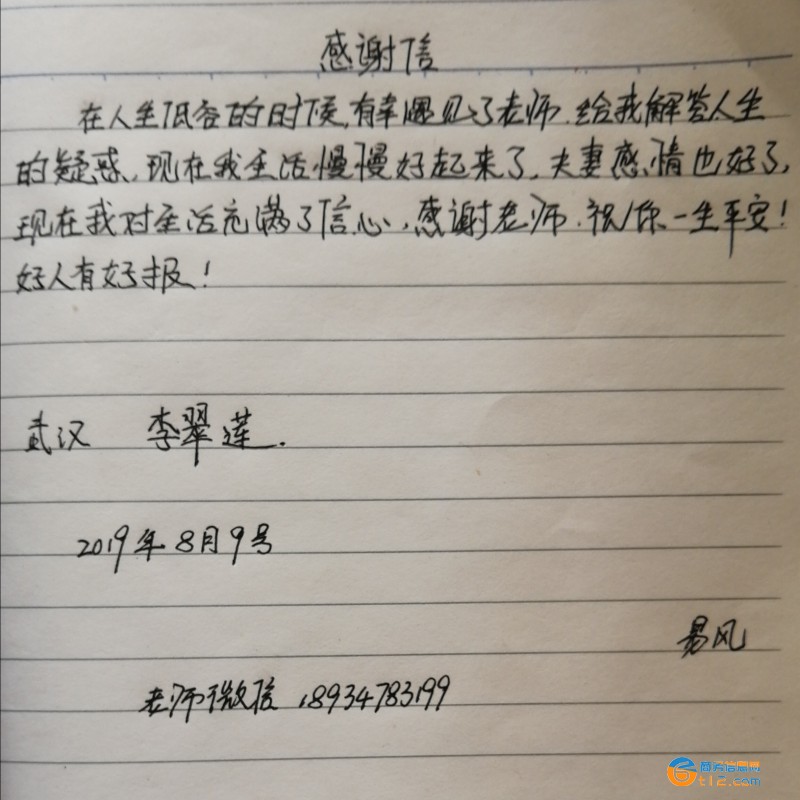 感谢信
在人生低谷的时候,有幸遇见了老师.给我解答人生
的疑惑,现在我生活慢慢好起来了,夫妻感情也好了,
现在我对生活充满了信心,感谢老师.祝你一生平安!
好人有好报!
武汉 李翠莲.
2019年8月9号
易风
老师微信 18934783199
t12.com